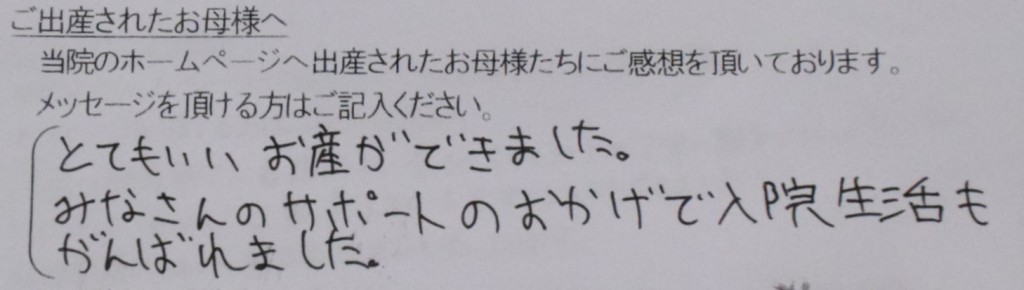 ご出産されたお母様へ
当院のホームページへ出産されたお母様たちにご感想を頂いております。
メッセージを頂ける方はご記入ください。
とてもいい お産ができました。
みなさんのサポートのおかげで入院生活も
がんばれました。